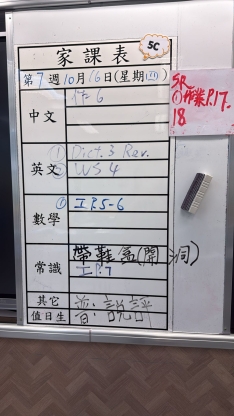 家課表 5C
第7週10月16日(星期四)
中文 作6
英文 ① Dict. 3 Rev.
② WS 4
數學 ① 工P.5-6
常識 帶鞋盒(開洞)
工P.7
其它 普:說評
值日生
SR
①作業P.17.
18